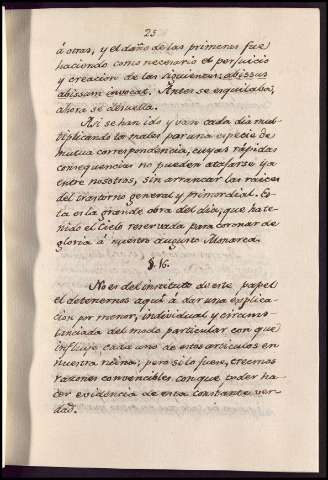 25
á otras, y el daño de las primeras fue
haciendo como necesario el perjuicio
y creacion de las siguientes: abissus
abissum invocat. Antes se esquilaba;
ahora se desuella.
Asi se han ido y van cada dia mul-
tiplicando los males por una especie de
mutua correspondencia, cuyas rápidas
consequencias no pueden atajarse ya
entre nosotros, sin arrancar las raíces
del trastorno general y primordial. Es-
ta es la grande obra del dia, que ha te-
nido el Cielo reservada para coronar de
gloria á nuestro augusto Monarca.
§. 16.
No es del instituto de este papel
el detenernos aquí á dar una explica-
cion por menor, individual y circuns-
tanciada del modo particular con que
influye cada uno de estos artículos en
nuestra ruina; pero si lo fuese, creemos
razones convencibles con que poder ha-
cer evidencia de esta constante ver-
dad.